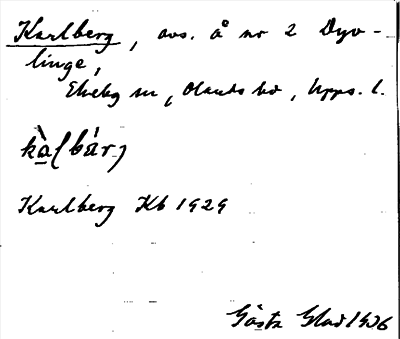 Karlberg, avs. å nr 2 Dyv-
linge,
Ekeby sn, Olands hd, Upps. l.
kà(bár)
Karlberg Kb 1929
Gösta Glad 1936